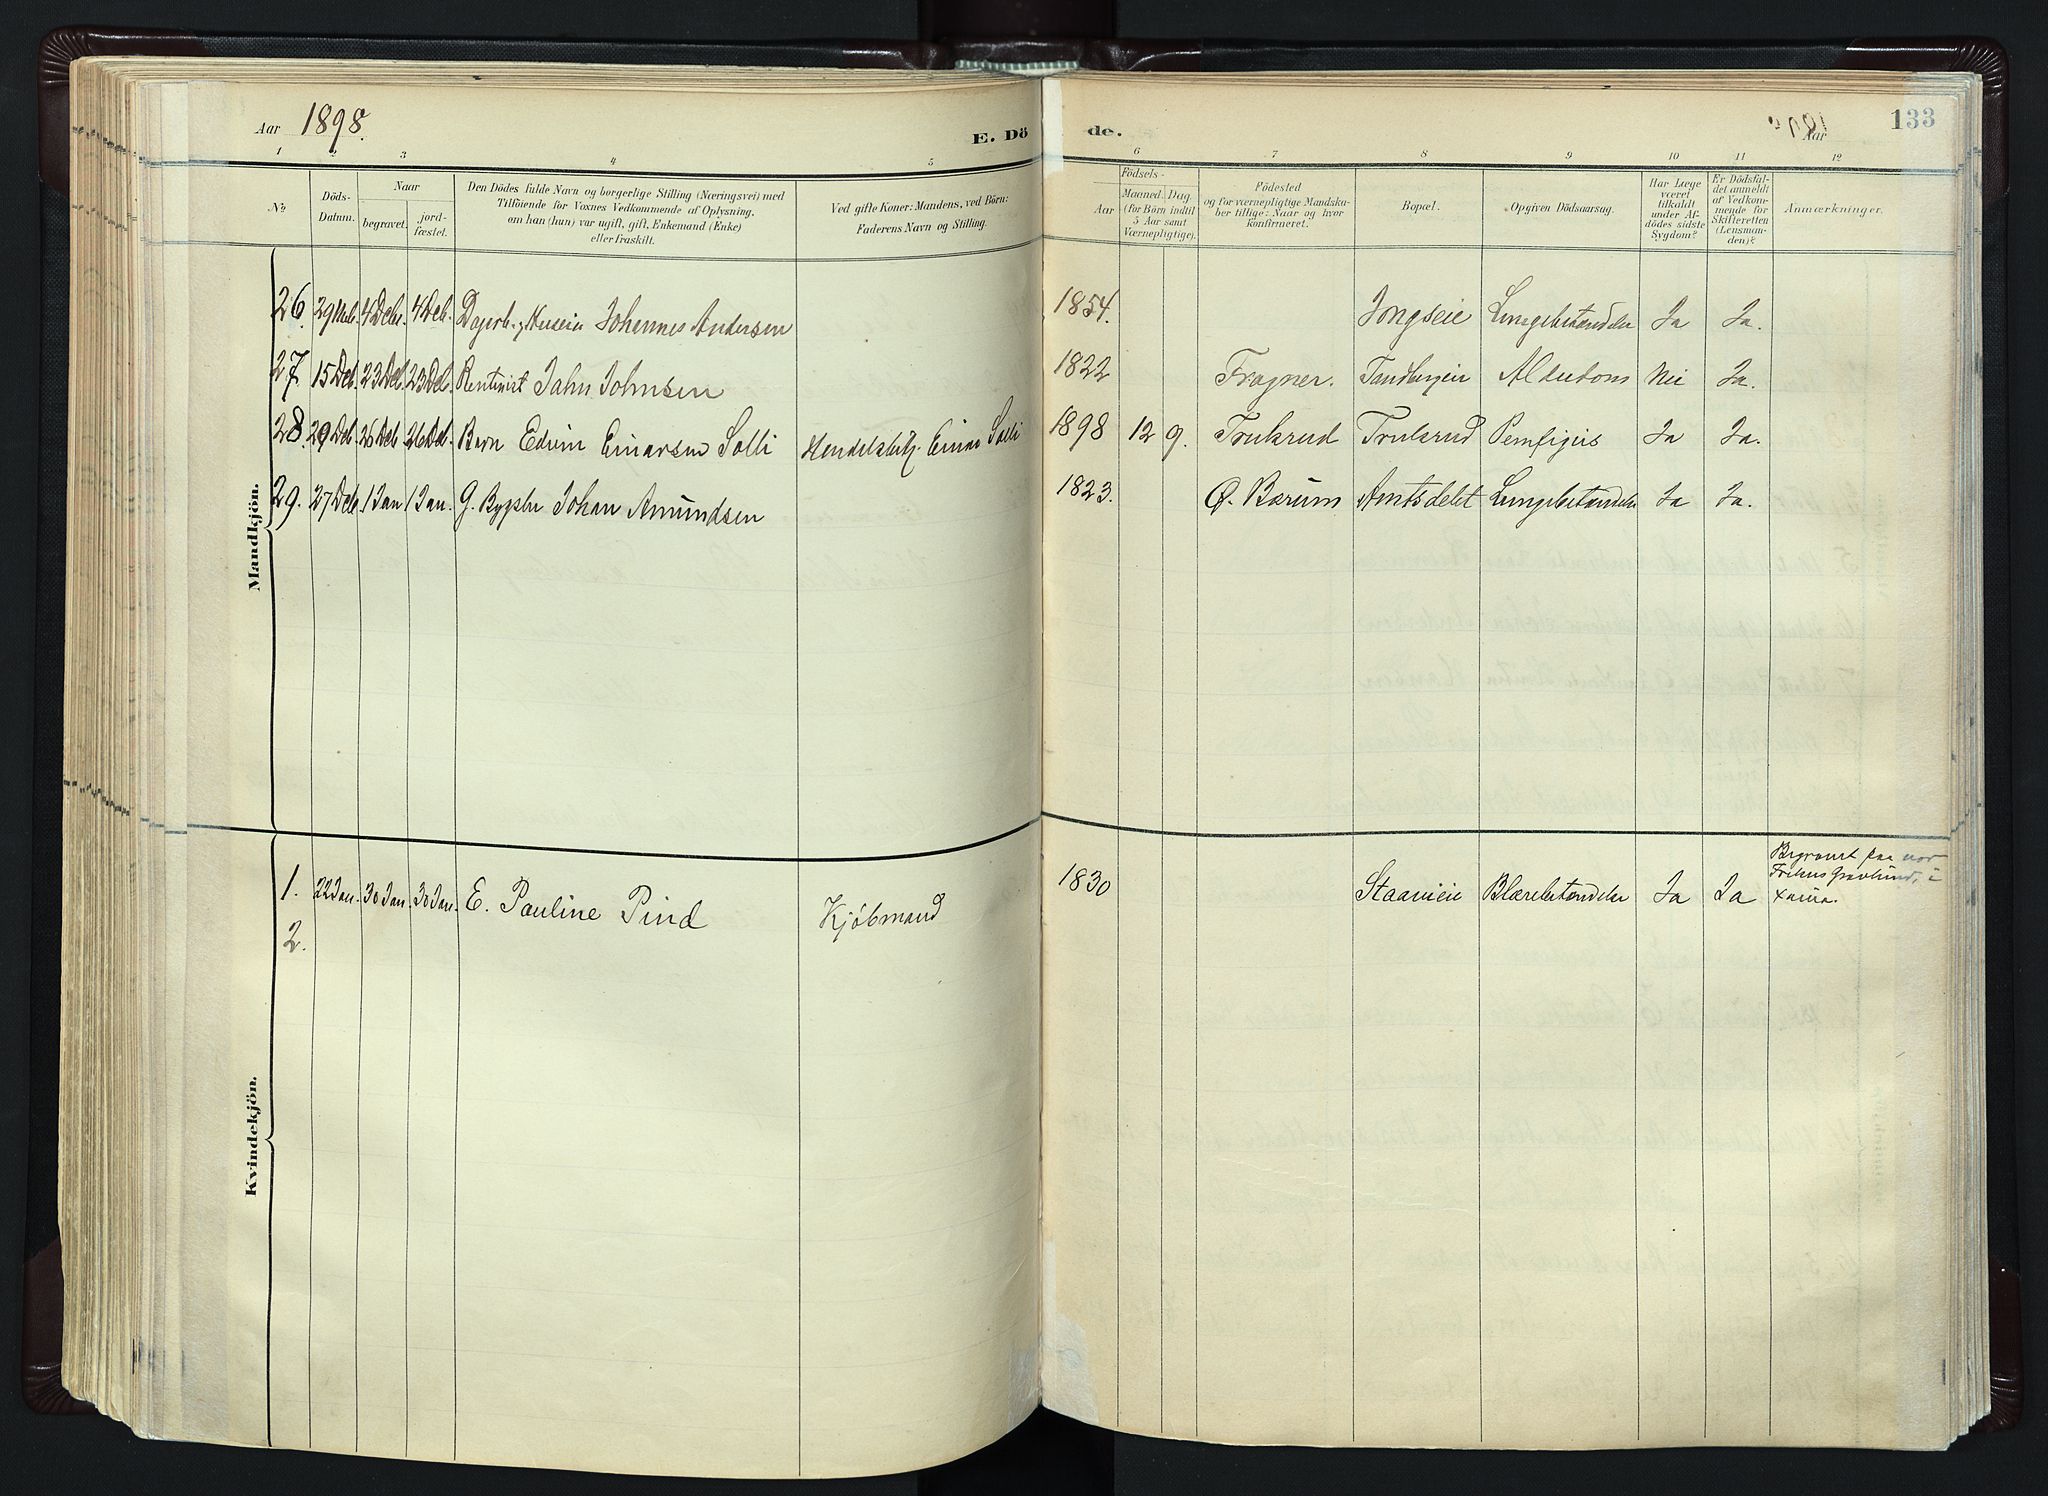 Aar 1898.
E. Dö
de.
Aar
133
1 2 3 4 5
6 7 8 9 10 11 12
No
Döds-
Datum.
Naar
begravet.
jord-
fæstet.
Den Dödes fulde Navn og borgerlige Stilling (Næringsvei) med
Tilföiende for Voxnes Vedkommende af Oplysning,
om han (hun) var ugift, gift, Enkemand (Enke)
eller fraskilt.
Ved gifte Koner: Mandens, ved Börn:
Faderens Navn og Stilling.
Födsels-
Aar
Maaned. Dag.
(for Börn indtil
5 Aar samt
Værnepligtige).
Födested
og for værnepligtige Mandska-
ber tillige: Naar og hvor
konfirmeret.
Bopæl.
Opgiven Dödsaarsag.
Har Læge
været
tilkaldt
under Af-
dödes sidste
Sygdom?
Er Dödsfal-
det anmeldt
af Vedkom-
mende for
Skifteretten
(Lensman-
den)?
Anmærkninger.
Mandkjön.
26. 4 Deb. 4 Deb. Johannes Andersen 1854. Jongseie Lungebetændelse Ja Ja.
27. 15 Deb. 23 Deb. 23 Deb. Rentenist Jahn Johnsen 1822 Fragner. Tandbergeie Alderdoms Nei Ja.
28. 29 Deb. 26 Deb. 26 Deb. Barn Edvin Einarsen Solli Einar Solli 1898 12 9. Trulsrud Trulsrud Pemfigus Ja Ja.
29. 27 Deb. 1 Jan 1 Jan. G. Johan Amundsen 1823. Ø. Bærum Amtsdelet Lungebetændelse Ja Ja.
Kvindekjön.
1. 22 Jan. 30 Jan. 30 Jan. E. Pauline Pind Kjöbmand 1830 Blærebetændelse Ja Ja Begravet paa vor
Frelsers Gravlund, i
2.